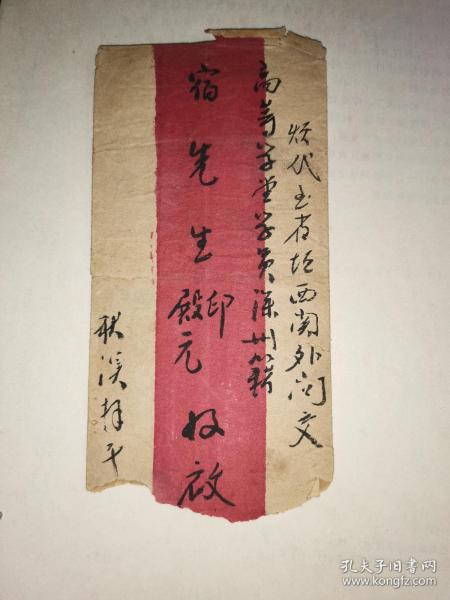 烦代至省垣西关外问交
高等学堂学员深州籍
宿先生印殿元 好启
耿溪拜干
孔夫子旧书网
www.kongfz.com